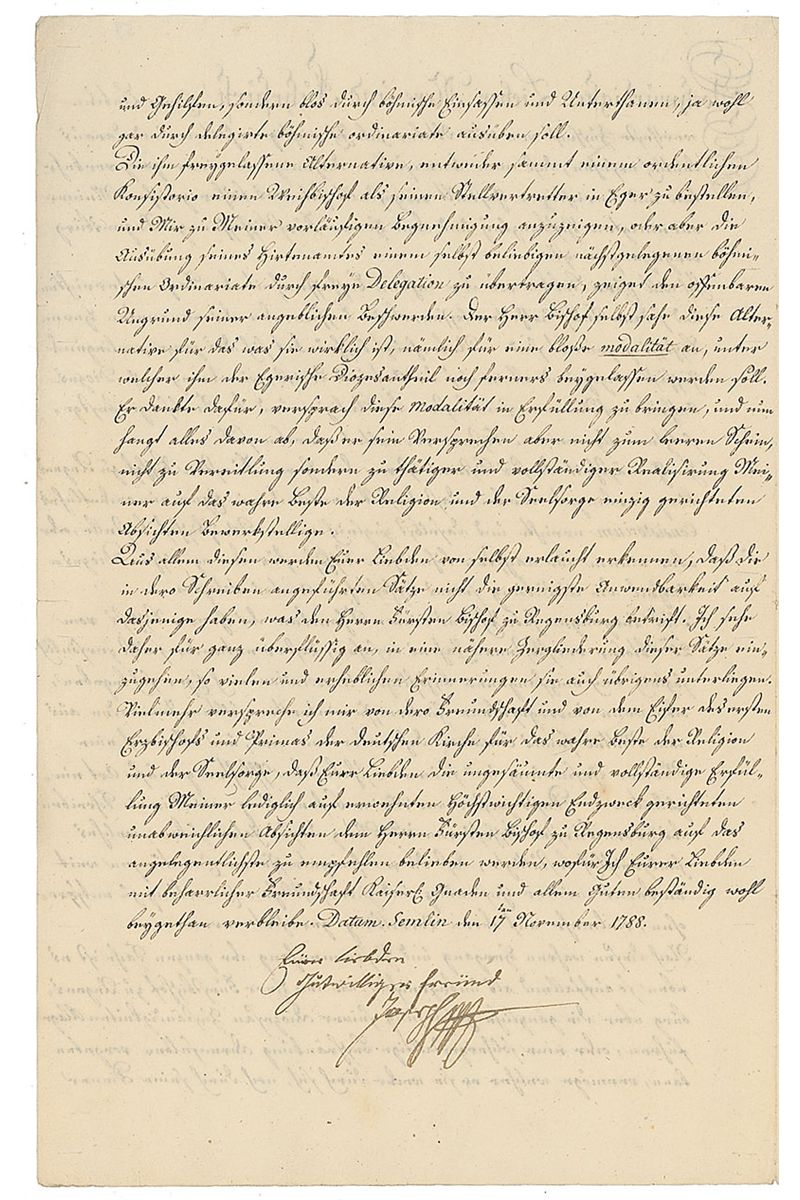 und Gehilfen, sondern blos durch böhmische Einsassen und Unterthanen, ja wohl
gar durch delegirte böhmische ordinariate ausüben soll.
Die ihm freygelassene Alternative, entweder sammt einem ordentlichen
Konsistorio einen Weihbischof als seinen Stellvertretter in Eger zu bestellen,
und Mir zu Meiner vorläufigen Begnehmigung anzuzeigen, oder aber die
Ausübung seines Hirtenamtes einem selbst beliebigen nächstgelegenen böhmi-
schen Ordinariate durch freye Delegation zu übertragen, zeiget den offenbaren
Ungrund seiner angeblichen Beschwerden. Der Herr Bischof selbst sahe diese Alter-
native für das was sie wirklich ist, nämlich für eine bloße modalität an, unter
welcher ihm der Egerische Diozesantheil noch ferners beygelassen werden soll.
Er dankte dafür, versprach diese modalität in Erfüllung zu bringen, und nun
hangt alles davon ab, daß er sein Versprechen aber nicht zum leeren Schein,
nicht zu Vereitlung sondern zu thätiger und vollständiger Realisirung Mei-
ner auf das wahre Beste der Religion und der Seelsorge einzig gerichteten
Absichten Bewerkstellige.
Aus allem diesen werden Euer Liebden von selbst erlaucht erkennen, daß die
in dero Schreiben angeführten Sätze nicht die geringste Anwendbarkeit auf
dasjenige haben, was den Herrn Fürsten Bischof zu Regensburg betrift. Ich sehe
daher für ganz überflüssig an, in eine nähere Zergliederung dieser Sätze ein-
zugehen, so vielen und erheblichen Erinnerungen sie auch übrigens unterliegen.
Vielmehr verspreche ich mir von dero Freundschaft und von dem Eifer des ersten
Erzbischofs und Primas der deutschen Kirche für das wahre Beste der Religion
und der Seelsorge, daß Eure Liebden die ungesäumte und vollständige Erfül-
lung Meiner lediglich auf erwehnten Höchstwichtigen Endzweck gerichteten
unabweichlichen Absichten dem Herrn Fürsten Bischof zu Regensburg auf das
angelegentlichste zu empfehlen belieben werden, wofür Ich Eurer Liebden
mit beharrlicher Freundschaft Kaiserl. Gnaden und allem Guten beständig wohl
beygethan verbleibe. Datum. Semlin den 17ten November 1788.
Euer liebden
Gutwilliger freund
Joseph